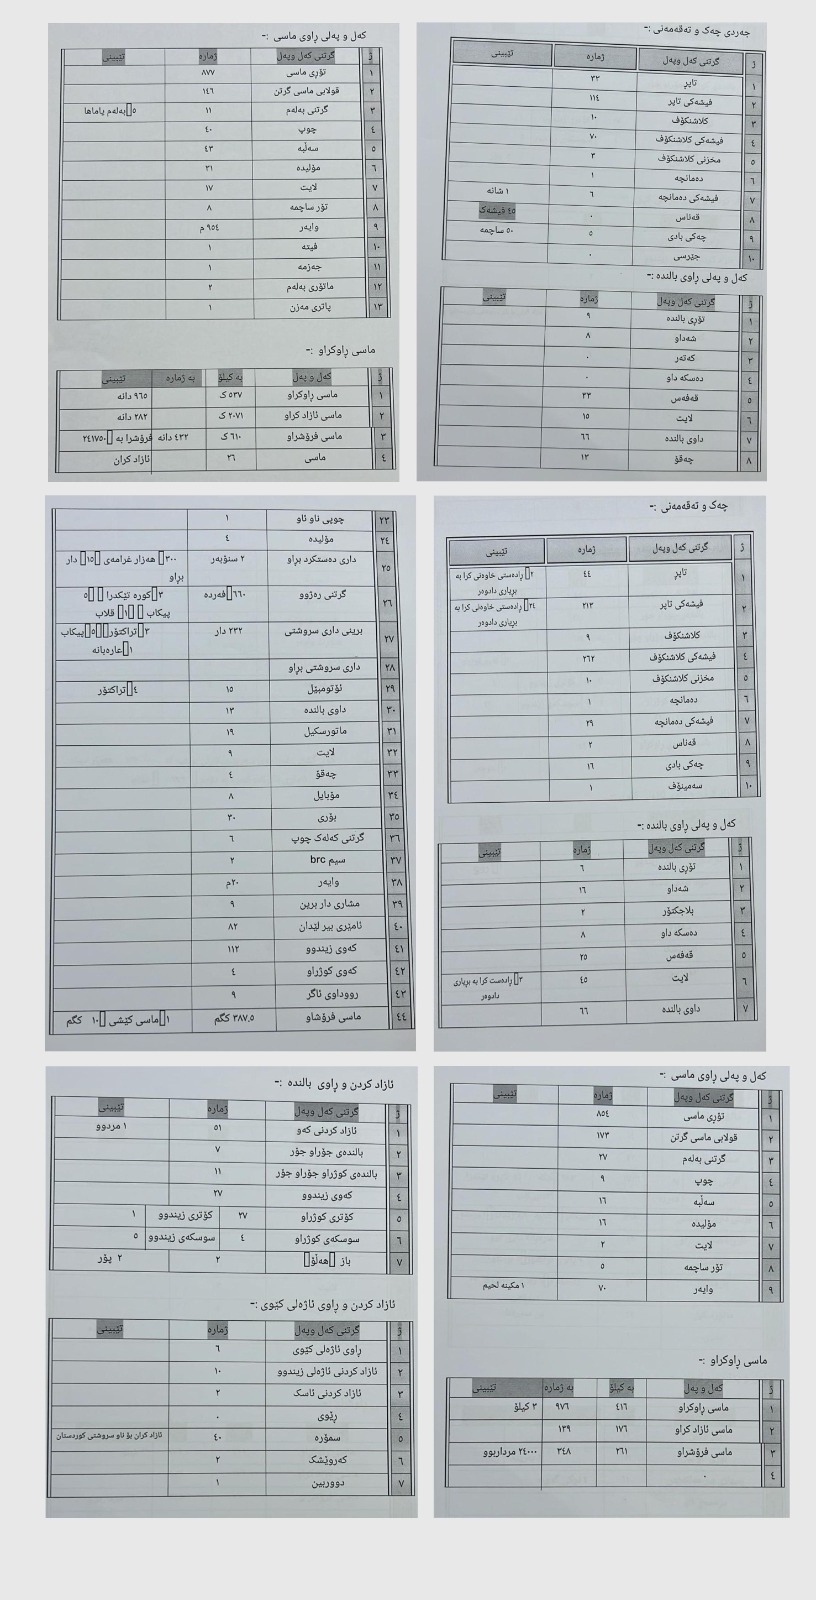 جەردی چەک و تەقەمەنی :-
ژ گرتنی کەل وپەل ژمارە تێبینی
١ تاپڕ ٣٣
٢ فیشەکی تاپر ١١٤
٣ کلاشنکۆف ١٠
٤ فیشەکی کلاشنکۆف ٧٠
٥ مخزنی کلاشنکۆف ٣
٦ دەمانچە ١
٧ فیشەکی دەمانچە ٦ ١ شانە
٨ قەناس ٠ ٤٥ فیشەک
٩ چەکی بادی ٥ ٥٠ ساچمە
١٠ جێرسی ٠
کەل و پەلی ڕاوی بالندە :-
ژ گرتنی کەل وپەل ژمارە تێبینی
١ تۆڕی بالندە ٩
٢ شەداو ٨
٣ کەتەر ٠
٤ دەسکە داو ٠
٥ قەفەس ٣٣
٦ لایت ١٥
٧ داوی بالندە ٦٦
٨ چەقۆ ١٣
کەل و پەلی ڕاوی ماسی :-
ژ گرتنی کەل وپەل ژمارە تێبینی
١ تۆڕی ماسی ٨٧٧
٢ قولابی ماسی گرتن ١٤٦
٣ گرتنی بەلەم ١١ ٥بەلەم یاماها
٤ چوپ ٤٠
٥ سەڵبە ٤٣
٦ مۆلیدە ٣١
٧ لایت ١٧
٨ تۆر ساچمە ٨
٩ وایەر ٩٥٤ م
١٠ فیتە ١
١١ جەزمە ١
١٢ ماتۆری بەلەم ٢
١٣ پاتری مەزن ١
ماسی ڕاوکراو :-
ژ کەل و پەل بە کیلۆ بە ژمارە تێبینی
١ ماسی ڕاوکراو ٥٣٧ ک ٩٦٥ دانە
٢ ماسی ئازاد کراو ٢٠٧١ ک ٢٨٢ دانە
٣ ماسی فرۆشراو ٦١٠ ک ٤٣٢ دانە فرۆشرا بە ٢٤١٧٥٠
٤ ماسی ٢٦ ئازاد کران
چەک و تەقەمەنی :-
ژ گرتنی کەل وپەل ژمارە تێبینی
١ تاپڕ ٤٤ ٢ ڕادەستی خاوەنی کرا بە
بڕیاری دادوەر
٢ فیشەکی تاپر ٢١٣ ٢٤ ڕادەستی خاوەنی کرا بە
بڕیاری دادوەر
٣ کلاشنکۆف ٩
٤ فیشەکی کلاشنکۆف ٢٦٢
٥ مخزنی کلاشنکۆف ١٠
٦ دەمانچە ١
٧ فیشەکی دەمانچە ٢٩
٨ قەناس ٢
٩ چەکی بادی ١٦
١٠ سەمینۆف ١
کەل و پەلی ڕاوی بالندە :-
ژ گرتنی کەل وپەل ژمارە تێبینی
١ تۆڕی بالندە ٦
٢ شەداو ١٦
٣ بلاجکتۆر ٢
٤ دەسکە داو ٨
٥ قەفەس ٢٥
٦ لایت ٤٥ ٣ ڕادەست کرا بە بڕیاری
دادوەر
٧ داوی بالندە ٦٦
٢٣ چوپی ناو ئاو ١
٢٤ مۆلیدە ٤
٢٥ داری دەستکرد بڕاو ٢ سنۆبەر ٣٠٠ هەزار غرامەی ١٥ دار
بڕاو
٢٦ گرتنی رەژوو ٦٦٠ فەردە ٣ کورە تێکدرا ٥
پیکاب ١ قلاب
٢٧ برینی داری سروشتی ٢٣٢ دار ٣ تراکتۆر ٥ پیکاب
١ عارەبانە
٢٨ داری سروشتی بڕاو
٢٩ ئۆتومبێل ١٥ ٤ تراکتۆر
٣٠ داوی بالندە ١٣
٣١ ماتورسکیل ١٩
٣٢ لایت ٩
٣٣ چەقۆ ٤
٣٤ مۆبایل ٨
٣٥ بۆری ٣٠
٣٦ گرتنی کەلەک چوپ ٦
٣٧ سیم brc ٢
٣٨ وایەر ٢٠م
٣٩ مشاری دار برین ٩
٤٠ ئامێری بیر لێدان ٨٢
٤١ کەوی زیندوو ١١٢
٤٢ کەوی کوژراو ٤
٤٣ رووداوی ئاگر ٩
٤٤ ماسی فرۆشاو ٣٨٧،٥ کگم ١ ماسی کێشی ١٠ کگم
کەل و پەلی ڕاوی ماسی :-
ژ گرتنی کەل وپەل ژمارە تێبینی
١ تۆڕی ماسی ٨٥٤
٢ قولابی ماسی گرتن ١٧٣
٣ گرتنی بەلەم ٢٧
٤ چوپ ٩
٥ سەڵبە ١٦
٦ مۆلیدە ١٦
٧ لایت ٢
٨ تۆر ساچمە ٥
٩ وایەر ٧٠ ١ مکینە لحیم
ماسی ڕاوکراو :-
ژ کەل و پەل بە کیلۆ بە ژمارە تێبینی
١ ماسی ڕاوکراو ٤١٦ ٩٧٦ ٣ کیلۆ
٢ ماسی ئازاد کراو ١٧٦ ١٣٩
٣ ماسی فرۆشراو ٢٦١ ٣٤٨ ٢٤٠٠٠ مرداربوو
٤ ٠
ئازاد کردن و ڕاوی بالندە :-
ژ گرتنی کەل وپەل ژمارە تێبینی
١ ئازاد کردنی کەو ٥١ ١ مردوو
٢ بالندەی جۆراو جۆر ٧
٣ بالندەی کوژراو جۆراو جۆر ١١
٤ کەوی زیندوو ٢٧
٥ کۆتری کوژراو ٢٧ کۆتری زیندوو ١
٦ سوسکەی کوژراو ٤ سوسکەی زیندوو ٥
٧ باز هەڵۆ ٢ ٢ پۆر
ئازاد کردن و ڕاوی ئاژەلی کێوی :-
ژ گرتنی کەل وپەل ژمارە تێبینی
١ ڕاوی ئاژەلی کێوی ٦
٢ ئازاد کردنی ئاژەلی زیندوو ١٠
٣ ئازاد کردنی ئاسک ٢
٤ ڕێوی ٠
٥ سمۆرە ٤٠ ئازاد کران بۆ ناو سروشتی کوردستان
٦ کەروێشک ٢
٧ دووربین ١